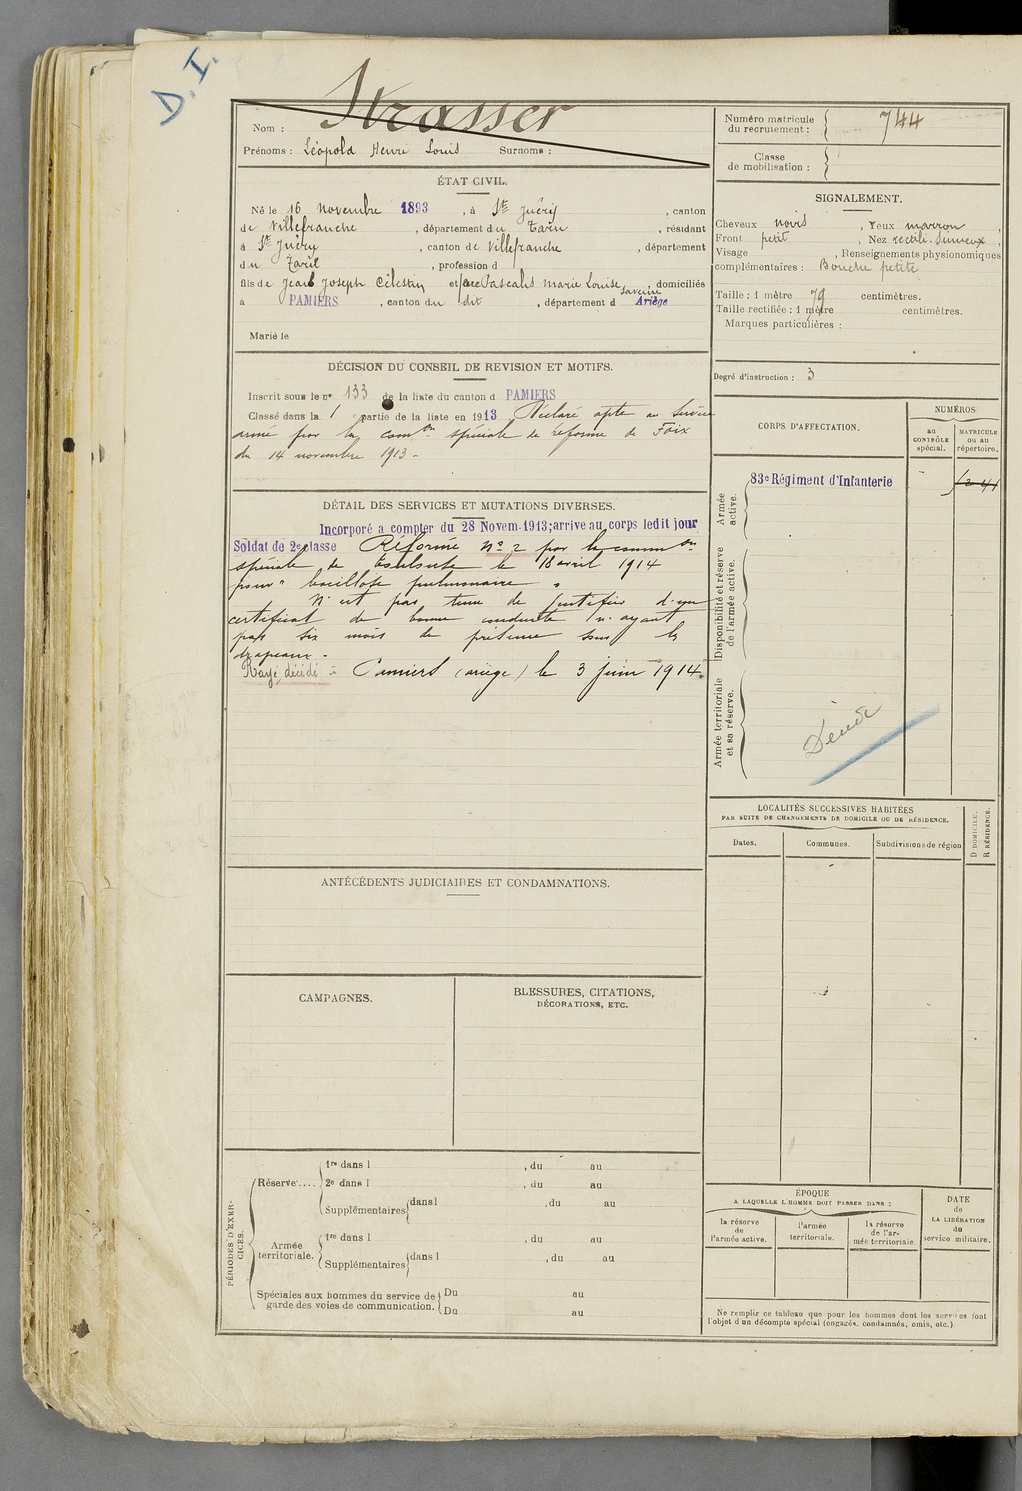 D. I.
Nom : Strasser
Prénoms : Léopold Henri Louis Surnoms :
Numéro matricule du recrutement : 744
Classe de mobilisation :
ÉTAT CIVIL.
Né le 16 novembre 1893, à St Juéry, canton
de Villefranche, département du Tarn, résidant
à St Juéry, canton de Villefranche, département
du Tarn, profession d
fils de Jean Joseph Célestin et de Pascalis Marie Louise, domiciliés
à PAMIERS, canton du dit, département d Ariège
Marié le
SIGNALEMENT.
Cheveux noirs, Yeux marron,
Front petit, Nez rectili. sinueux,
Visage , Renseignements physionomiques
complémentaires : Bouche petite
Taille : 1 mètre 79 centimètres.
Taille rectifiée : 1 mètre centimètres.
Marques particulières :
Degré d'instruction : 3
DÉCISION DU CONSEIL DE REVISION ET MOTIFS.
Inscrit sous le n° 133 de la liste du canton d PAMIERS
Classé dans la 1 partie de la liste en 1913 Déclaré apte au service
armé par la comon spéciale de réforme de Foix
du 14 novembre 1913 -
DÉTAIL DES SERVICES ET MUTATIONS DIVERSES.
Incorporé a compter du 28 Novem. 1913; arrive au corps ledit jour
Soldat de 2e classe Réformé N° 2 par la common
spéciale de le 18 avril 1914
pour " bacillose pulmonaire "
N'est pas tenu de justifier d'un
certificat de bonne conduite n'ayant
pas six mois de présence sous les
drapeaux -
Rayé, décédé à Pamiers (ariège) le 3 juin 1914.
CORPS D'AFFECTATION.
NUMÉROS
au CONTRÔLE spécial.
MATRICULE ou au répertoire.
Armée active.
83e Régiment d'Infanterie
Disponibilité et réserve de l'armée active.
Armée territoriale et sa réserve.
LOCALITÉS SUCCESSIVES HABITÉES
PAR SUITE DE CHANGEMENTS DE DOMICILE OU DE RÉSIDENCE.
Dates.
Communes.
Subdivisions de région
D DOMICILE.
R RÉSIDENCE.
ANTÉCÉDENTS JUDICIAIRES ET CONDAMNATIONS.
CAMPAGNES.
BLESSURES, CITATIONS,
DÉCORATIONS, ETC.
PÉRIODES D'EXERCICES.
Réserve.... 1re dans l , du au
2e dans l , du au
Supplémentaires dans l , du au
Armée territoriale. 1re dans l , du au
Supplémentaires dans l , du au
Spéciales aux hommes du service de garde des voies de communication. Du au
Du au
ÉPOQUE
A LAQUELLE L'HOMME DOIT PASSER DANS :
la réserve de l'armée active.
l'armée territoriale.
la réserve de l'armée territoriale.
DATE de LA LIBÉRATION du service militaire.
Ne remplir ce tableau que pour les hommes dont les services font
l'objet d'un décompte spécial (engagés, condamnés, omis, etc.).